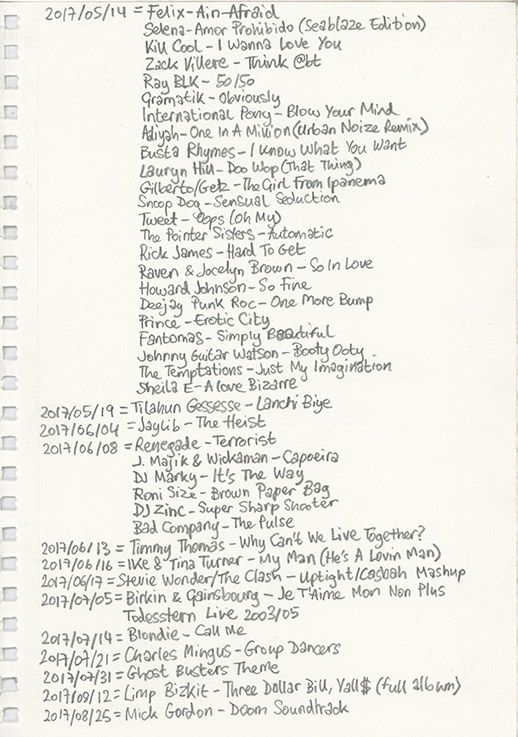 2017/05/14 = Felix - Ain - Afraid
Selena - Amor Prohibido (Seablaze Edition)
Kill Cool - I Wanna Love You
Zack Villere - Think @bt
Ray BLK - 50/50
Gramatik - Obviously
International Pony - Blow Your Mind
Aaliyah - One In A Million (Urban Noize Remix)
Busta Rhymes - I Know What You Want
Lauryn Hill - Doo Wop (That Thing)
Gilberto/Getz - The Girl From Ipanema
Snoop Dog - Sensual Seduction
Tweet - Oops (Oh My)
The Pointer Sisters - Automatic
Rick James - Hard To Get
Raven & Jocelyn Brown - So In Love
Howard Johnson - So Fine
Deejay Punk Roc - One More Bump
Prince - Erotic City
Fantomas - Simply Beautiful
Johnny Guitar Watson - Booty Ooty
The Temptations - Just My Imagination
Sheila E - A Love Bizarre
2017/05/19 = Tilahun Gessesse - Lanchi Biye
2017/06/04 = Jaylib - The Heist
2017/06/08 = Renegade - Terrorist
J. Majik & Wickaman - Capoeira
DJ Marky - It's The Way
Roni Size - Brown Paper Bag
DJ Zinc - Super Sharp Shooter
Bad Company - The Pulse
2017/06/13 = Timmy Thomas - Why Can't We Live Together?
2017/06/16 = Ike & Tina Turner - My Man (He's A Lovin Man)
2017/06/17 = Stevie Wonder/The Clash - Uptight/Casbah Mashup
2017/07/05 = Birkin & Gainsbourg - Je T'Aime Mon Non Plus
Todesstern Live 2003/05
2017/07/14 = Blondie - Call Me
2017/07/21 = Charles Mingus - Group Dancers
2017/07/31 = Ghost Busters Theme
2017/08/12 = Limp Bizkit - Three Dollar Bill, Yall$ (full album)
2017/08/25 = Mick Gordon - Doom Soundtrack